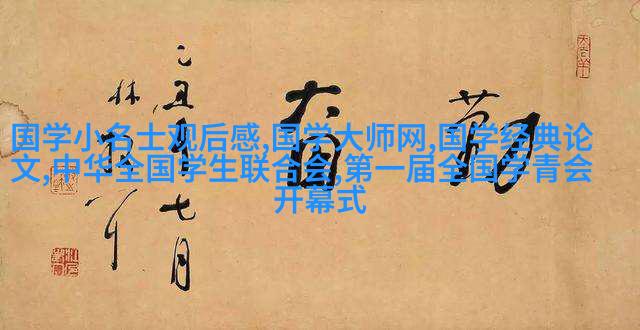 国学小名士观后感,国学大师网,国学经典论
文,中华全国学生联合会,第一届全国学青会
开幕式
勤
乙丑年七月
林